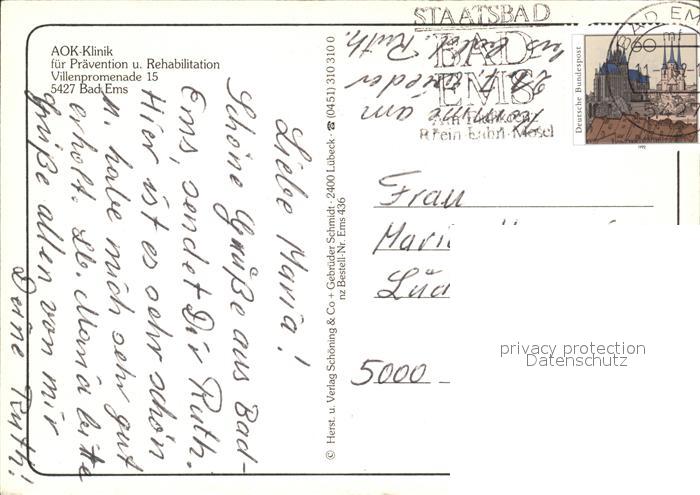 AOK-Klinik
für Prävention u. Rehabilitation
Villenpromenade 15
5427 Bad Ems
Liebe Maria!
Schöne Grüße aus Bad-
Ems, sendet Dir Ruth.
Hier ist es sehr schön
u. habe mich sehr gut
erholt. Lb. Maria bitte
Grüße allen von mir
Deine Ruth!
komme am
wieder
Ruth.
© Herst. u. Verlag Schöning & Co + Gebrüder Schmidt · 2400 Lübeck · ☎ (0451) 310 310 0
nz Bestell-Nr. Ems 436
STAATSBAD
BAD
EMS
Rhein-Lahn-Mosel
BAD EM
Deutsche Bundespost
60
1992
Frau
Mari
5000
privacy protection
Datenschutz